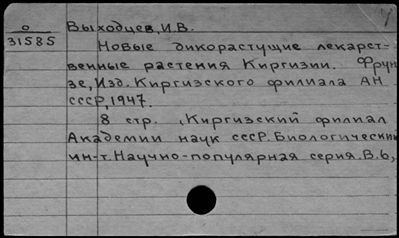 О
31585
Выходцев, И.В.
Новые дикорастущие лекарст-
венные растения Киргизии. Фрун-
зе, Изд. Киргизского филиала АН
СССР, 1947.
8 стр. (Киргизский филиал
Академии наук СССР. Биологический
ин-т. Научно-популярная серия. В.6,